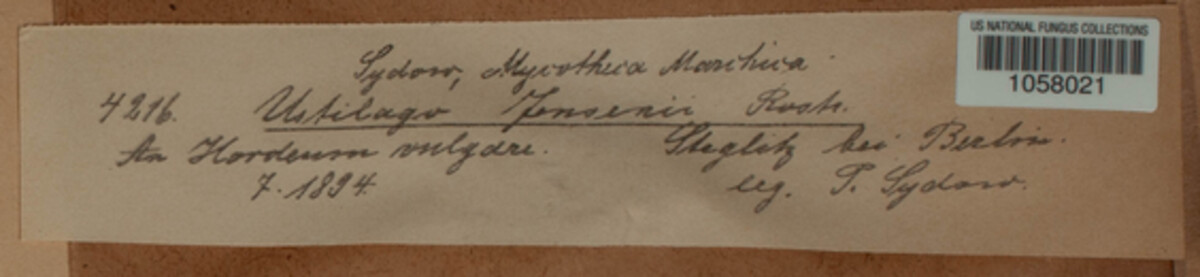 Sydow, Mycotheca Marchica.
4216. Ustilago Jensenii Rostr.
An Hordeum vulgare. Steglitz bei Berlin.
7. 1894. leg. P. Sydow.
US NATIONAL FUNGUS COLLECTIONS
1058021